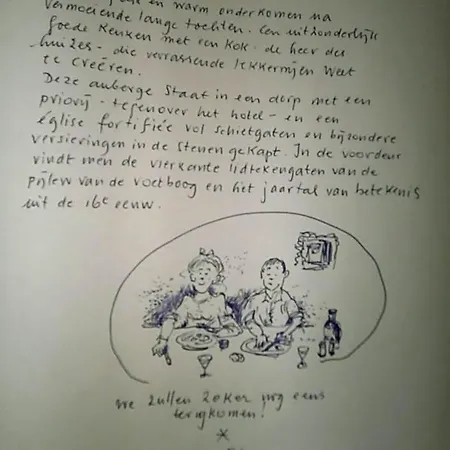 en warm onderkomen na
vermoeiende lange tochten. Een uitzonderlijk
goede keuken met een kok - de heer des
huizes - die verrassende lekkernijen weet
te creëren.
Deze auberge staat in een dorp met een
priorij - tegenover het hotel - en een
église fortifiée vol schietgaten en bijzondere
versieringen in de stenen gekapt. In de voordeur
vindt men de vierkante lidtekengaten van de
pijlen van de voetboog en het jaartal van betekenis
uit de 16e eeuw.
We zullen zeker nog eens
terugkomen!
*